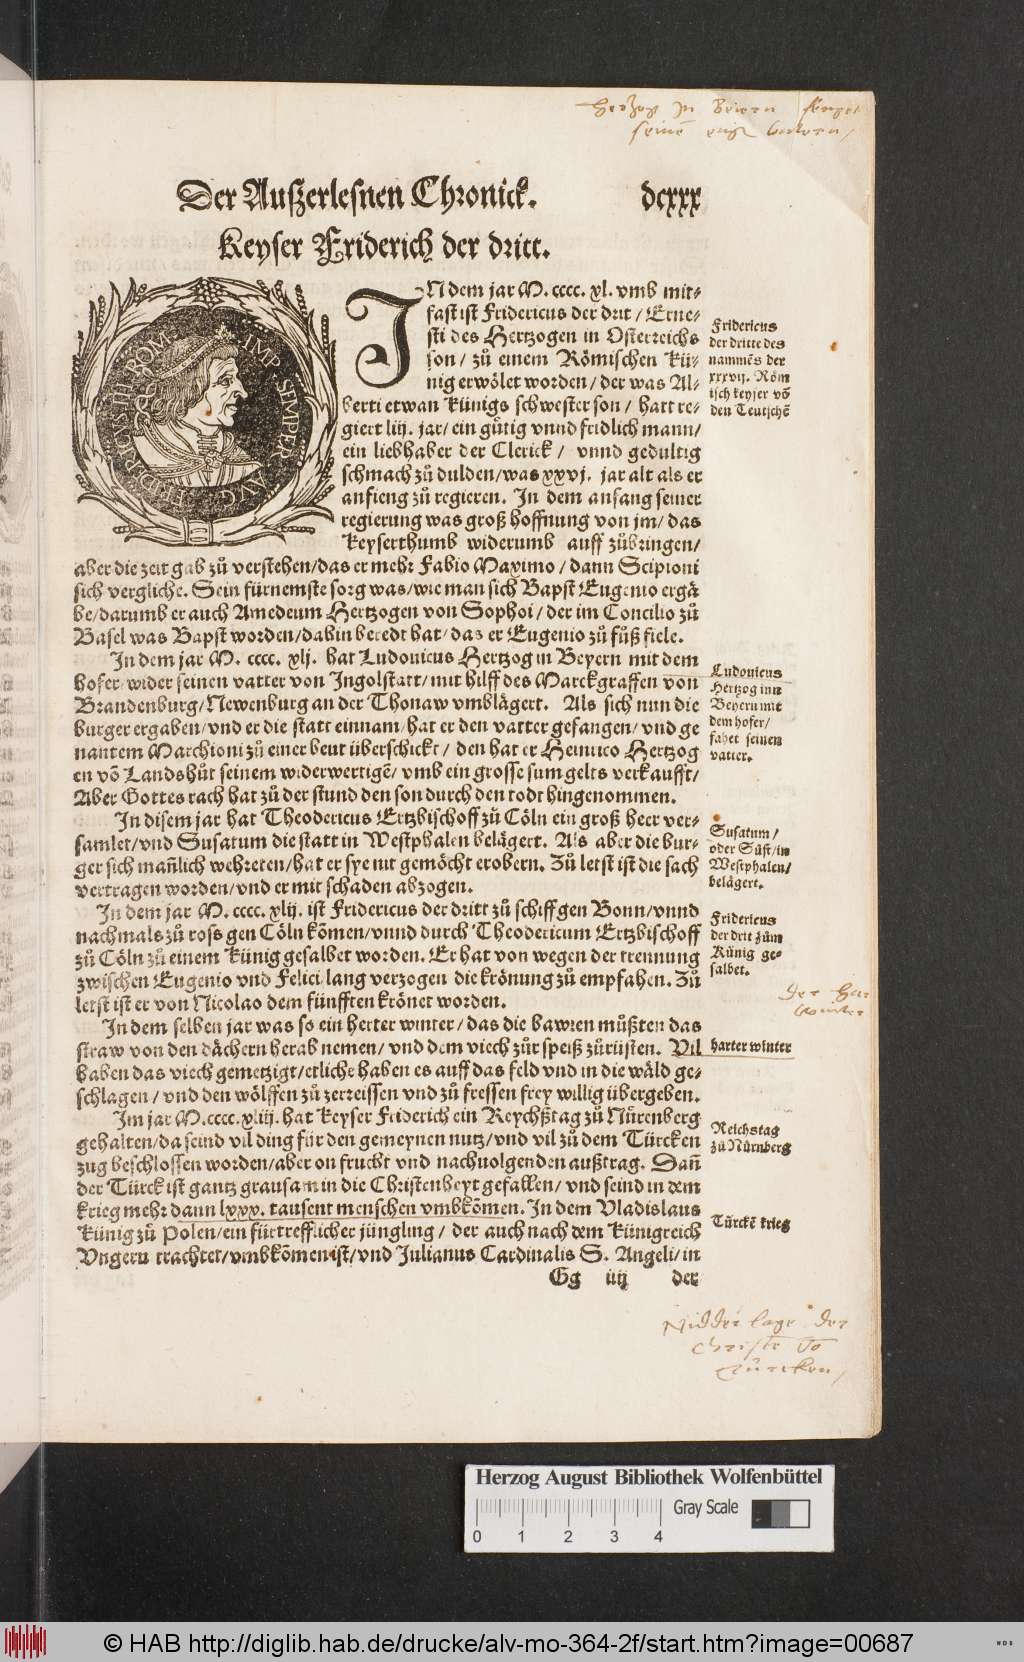 Hertzog in Beiern
seinē vattern/
Der Außerlesnen Chronick. dcxxx
Keyser Friderich der dritt.
IMP. SEMPER. AVG. FRIDRICVS. III. ROM
IN dem jar M. cccc. xl. vmb mit-
fast ist Fridericus der drit / Erne-
sti des Hertzogen in Osterreichs
son / zů einem Römischen Kü-
nig erwölet worden / der was Al-
berti etwan Künigs schwester son / hatt re-
giert liij. jar / ein gůtig vnnd fridlich mann /
ein liebhaber der Clerick / vnnd gedultig
schmach zů dulden / was xxvj. jar alt als er
anfieng zů regieren. In dem anfang seiner
regierung was groß hoffnung von jm / das
Keyserthumb widerumb auff zůbringen /
aber die zeit gab zů verstehen / das er mehr Fabio Maximo / dann Scipioni
sich vergliche. Sein fürnemste sorg was / wie man sich Bapst Eugenio ergä
be / darumb er auch Amedeum Hertzogen von Sophoi / der im Concilio zů
Basel was Bapst worden / dahin beredt hat / das er Eugenio zů fůß fiele.
In dem jar M. cccc. xlj. hat Ludouicus Hertzog in Beyern mit dem
hofer / wider seinen vatter von Ingolstatt / mit hilff des Marckgraffen von
Brandenburg / Newenburg an der Thonaw vmblägert. Als sich nun die
burger ergaben / vnd er die statt einnam / hat er den vatter gefangen / vnd ge
nantem Marchioni zů einer beut überschickt / den hat er Heinrico Hertzog
en vō Landshůt seinem widerwertigē / vmb ein grosse sum gelts verkaufft /
Aber Gottes rach hat zů der stund den son durch den todt hingenommen.
In disem jar hat Theodericus Ertzbischoff zů Cöln ein groß heer ver-
samlet / vnd Susatum die statt in Westphalen belägert. Als aber die bur-
ger sich mañlich wehreten / hat er sye nit gemöcht erobern. Zů letst ist die sach
vertragen worden / vnd er mit schaden abzogen.
In dem jar M. cccc. xlij. ist Fridericus der dritt zů schiff gen Bonn / vnnd
nachmals zů ross gen Cöln kōmen / vnnd durch Theodericum Ertzbischoff
zů Cöln zů einem Künig gesalbet worden. Er hat von wegen der trennung
zwischen Eugenio vnd Felici lang verzogen die krönung zů empfahen. Zů
letst ist er von Nicolao dem fünfften krönet worden.
In dem selben jar was so ein herter winter / das die bawren můßten das
straw von den dächern herab nemen / vnd dem viech zůr speiß zůrüsten. Vil
haben das viech gemetzigt / etliche haben es auff das feld vnd in die wäld ge-
schlagen / vnd den wölffen zů zerreissen vnd zů fressen frey willig übergeben.
Im jar M. cccc. xliij. hat Keyser Friderich ein Reychßtag zů Nůrenberg
gehalten / da seind vil ding für den gemeynen nutz / vnd vil zů dem Türcken
zug beschlossen worden / aber on frucht vnd nachuolgenden außtrag. Dañ
der Türck ist gantz grausam in die Christenheyt gefallen / vnd seind in dem
krieg mehr dann lxxx. tausent menschen vmbkōmen. In dem Vladislaus
Künig zů Polen / ein fürtrefflicher jüngling / der auch nach dem Künigreich
Vngern trachtet / vmbkōmen ist / vnd Julianus Cardinalis S. Angeli / in
Gg iiij der
Fridericus
der dritte des
nammēs der
xxxvij. Röm
isch keyser vō
den Teutschē
Ludouicus
Hertzog inn
Beyern mit
dem hofer /
fahet seinem
vatter.
Susatum /
oder Süst / in
Westphalen /
belägert.
Fridericus
der drit zům
Künig ge-
salbet.
der har
winter
harter winter
Reichstag
zů Nůrnberg
Türckē krieg
Nidderlage der
Christē vō
Türcken /
Herzog August Bibliothek Wolfenbüttel
Gray Scale
0 1 2 3 4
© HAB http://diglib.hab.de/drucke/alv-mo-364-2f/start.htm?image=00687